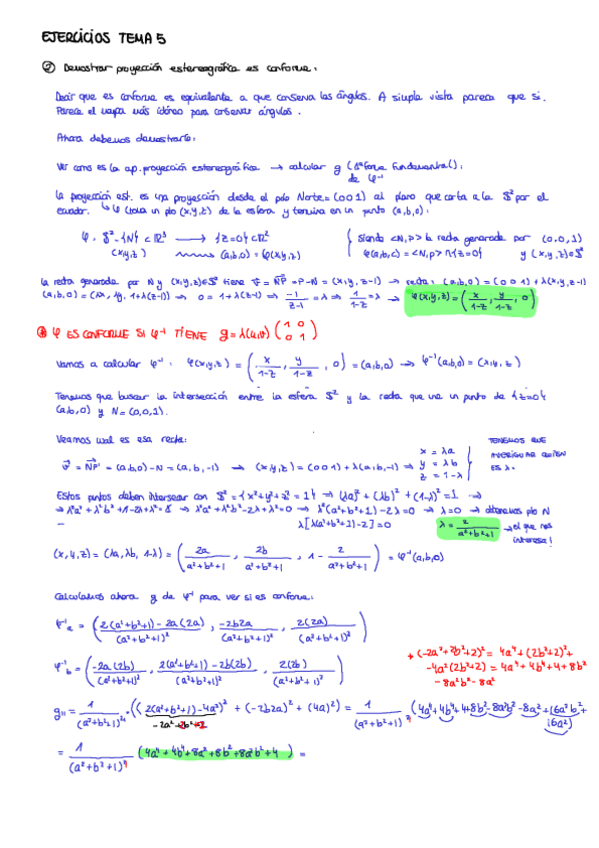 EJERCICIOS TEMA 5
② Demostrar proyección estereográfica es conforme.
Decir que es conforme es equivalente a que conserva los ángulos. A simple vista parece que sí.
Parece el mapa más idóneo para conservar ángulos.
Ahora debemos demostrarlo:
Ver como es la ap. proyección estereográfica → calcular g (1ª forma fundamental) de φ⁻¹
La proyección est. es una proyección desde el polo Norte = (0 0 1) al plano que corta a la S² por el
ecuador. → φ lleva un pto (x,y,z) de la esfera y termina en un punto (a,b,0):
φ: S² - {N} ⊂ R³ → {z=0} ⊂ R² siendo <N,p> la recta generada por (0,0,1)
(x,y,z) → (a,b,0) = φ(x,y,z) φ(a,b,c) = <N,p> ∩ {z=0} y (x,y,z) ∈ S²
la recta generada por N y (x,y,z) ∈ S² tiene v = NP = P-N = (x,y,z-1) → recta: (a,b,0) = (0 0 1) + λ(x,y,z-1)
(a,b,0) = (λx, λy, 1+λ(z-1)) → 0 = 1+λ(z-1) → -1/(z-1) = λ → 1/(1-z) = λ → φ(x,y,z) = (x/(1-z), y/(1-z), 0)
φ ES CONFORME SI φ⁻¹ TIENE g = λ(u,v) (1 0 / 0 1)
Vamos a calcular φ⁻¹: φ(x,y,z) = (x/(1-z), y/(1-z), 0) = (a,b,0) → φ⁻¹(a,b,0) = (x,y,z)
Tenemos que buscar la intersección entre la esfera S² y la recta que une un punto de {z=0}
(a,b,0) y N = (0,0,1).
Veamos cual es esa recta:
v = NP' = (a,b,0) - N = (a,b,-1) → (x,y,z) = (0 0 1) + λ(a,b,-1) → x = λa y = λb z = 1-λ TENEMOS QUE AVERIGUAR QUIEN ES λ.
Estos puntos deben intersecar con S² = {x²+y²+z² = 1} → (λa)² + (λb)² + (1-λ)² = 1 →
→ λ²a² + λ²b² + 1-2λ+λ² = 1 → λ²a² + λ²b² - 2λ + λ² = 0 → λ²(a²+b²+1) - 2λ = 0 → λ = 0 → obtenemos pto N
λ[λ(a²+b²+1)-2] = 0 λ = 2/(a²+b²+1) → el que nos interesa!
(x,y,z) = (λa, λb, 1-λ) = (2a/(a²+b²+1), 2b/(a²+b²+1), 1 - 2/(a²+b²+1)) = φ⁻¹(a,b,0)
Calculamos ahora g de φ⁻¹ para ver si es conforme:
φ⁻¹a = ((2(a²+b²+1) - 2a(2a))/(a²+b²+1)², -2b2a/(a²+b²+1)², 2(2a)/(a²+b²+1)²)
φ⁻¹b = (-2a(2b)/(a²+b²+1)², (2(a²+b²+1) - 2b(2b))/(a²+b²+1)², 2(2b)/(a²+b²+1)²)
* (-2a²+2b²+2)² = 4a⁴ + (2b²+2)² +
-4a²(2b²+2) = 4a⁴ + 4b⁴ + 4 + 8b²
-8a²b² - 8a²
g₁₁ = 1/(a²+b²+1)⁴ · ((2(a²+b²+1) - 4a²)² + (-2b2a)² + (4a)²) = 1/(a²+b²+1)⁴ (4a⁴+4b⁴+4+8b²-8a²b²-8a²+16a²b²+16a²)
-2a²+2b²+2
= 1/(a²+b²+1)⁴ (4a⁴+4b⁴+8a²+8b²+8a²b²+4) =